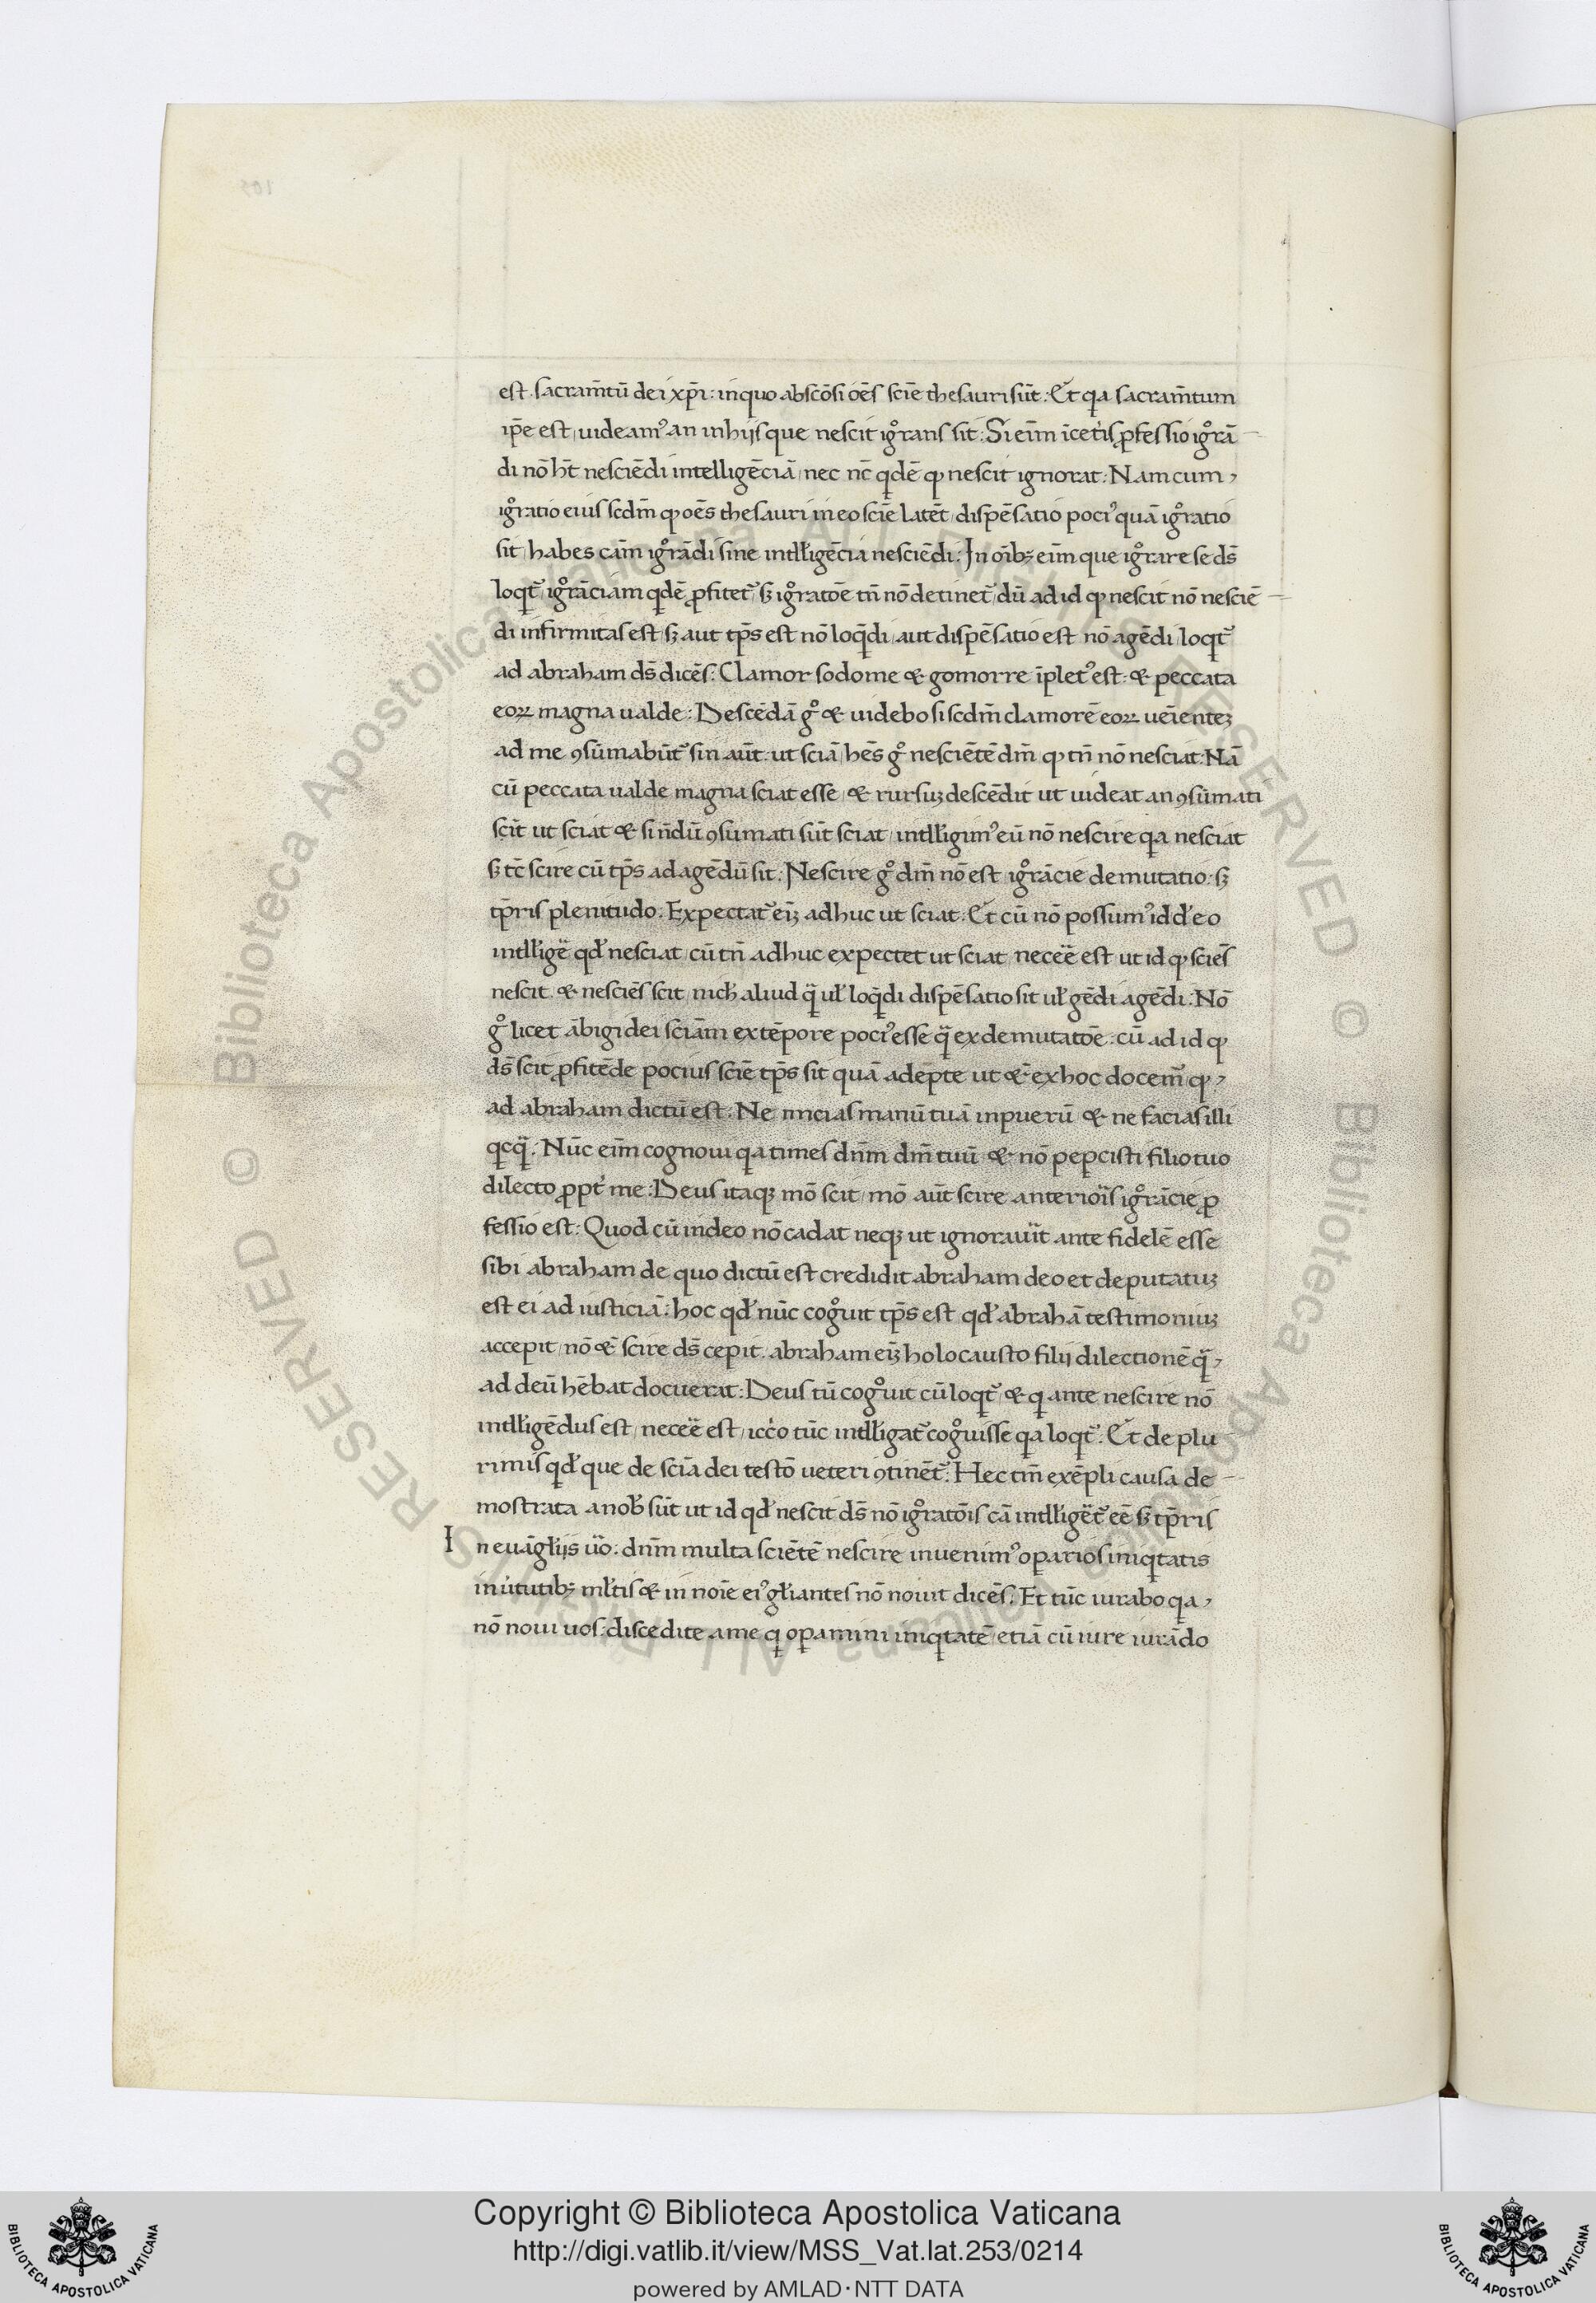 est. sacram̄tū dei xp̄i: in quo abscōsi oēs sciē thesauri sūt: Et qa sacram̄tum
ip̄e est, uideam᷒ an in hijs que nescit igͦrans sit: Si eīm īcet̄is ꝓfessio igͦrā
di nō hт̄ nesciēdi intelligēciā, nec nc̄ qdē ꝙ nescit ignorat: Nam cum,
igͦratio eius scdm̄ ꝙ oēs thesauri in eo sciē latēt, dispēsatio poci᷒ quā igͦratio
sit, habes cām igͦrādi sine intłłigēcia nesciēdi: In oībꝫ eīm que igͦrare se ds̄
loqt᷑, igͦrāciam qdē ꝓfitet᷑, sꝫ igͦratoē tn̄ nō detinet᷑, dū ad id ꝙ nescit nō nesciē
di infirmitas est, sꝫ aut tp̄s est nō loqdi, aut dispēsatio est nō agēdi, loqt᷑
ad abraham ds̄ dicēs: Clamor sodome & gomorre īplet᷒ est: & peccata
eoꝝ magna ualde: Descēdā gͦ & uidebo si scdm̄ clamorē eoꝝ uēienteꝫ
ad me ꝯsūmabūt᷑ sin aūt. ut sciā, hēs gͦ nesciētē dm̄ ꝙ tn̄ nō nesciat: Nā
cū peccata ualde magna sciat esse, & rursuꝫ descēdit ut uideat an ꝯsūmati
scīt ut sciat & si n̄dū ꝯsumati sūt sciat, intłłigim᷒ eū nō nescire qa nesciat
sꝫ tc̄ scire cū tp̄s ad agēdū sit: Nescire gͦ dm̄ nō est igͦrācie demutatio. sꝫ
tp̄ris plenitudo: Expectat᷑ eīꝫ adhuc ut sciat: Et cū nō possum᷒ id d̕ eo
intłłige᷑ qd̕ nesciat, cū tn̄ adhuc expectet ut sciat, necee᷑ est, ut id ꝙ sciēs
nescit. & nesciēs scit, nich̕ aliud q̈ uł loqdi dispēsatio sit uł gēdi agēdi: Nō
gͦ licet ābigi dei sciām ex tēpore poci᷒ esse q̈ ex demutatoē: cū ad id ꝙ
ds̄ scit ꝓfitēde pocius sciē tp̄s sit quā adēpte ut &̄ ex hoc docem᷑ ꝙ,
ad abraham dictū est: Ne inicias manū tuā in puerū & ne facias illi
qcq̈: Nūc eīm cognoui qa times dn̄m dm̄ tuū & nō peꝑcisti filio tuo
dilecto ꝓpt̕ me: Deus itaqꝫ mō scit, mō aūt scire anterioīs igͦrācie ꝓ
fessio est: Quod cū in deo nō cadat neqꝫ ut ignorau̎it ante fidelē esse
sibi abraham de quo dictū est credidit abraham deo et deputatuꝫ
est ei ad iusticiā: hoc qd̕ nūc cogͦuit tp̄s est qd̕ abrahā testimoniuꝫ
accepit, nō &̄ scire ds̄ cepit. abraham eīꝫ holocausto filij dilectionē q̈,
ad deū hēbat docuerat: Deus tū cogͦuit cū loqt᷑, & q ante nescire nō
intłłigēdus est, necee᷑ est, icc̕o tūc intłłigat᷑ cogͦuisse qa loqt᷑: Et de plu
rimis qd̕ que de sciā dei testō ueteri ꝯtinēt᷑: Hec tm̄ exēpli causa de
mostrata a nob̕ sūt ut id qd̕ nescit ds̄ nō igͦratoīs cā intłłige᷑t᷑ eē sꝫ tp̄ris
In euāgłijs u̎o: dn̄m multa sciētē nescire inuenim᷒ oꝑarios iniqtatis
in u̕tutibꝫ młtis & in noīe ei᷒ głiantes nō nouit dicēs: Et tūc iurabo qa,
nō noui uos: discedite a me q oꝑamini iniqtatē, etiā cū iure iurādo
Copyright © Biblioteca Apostolica Vaticana
http://digi.vatlib.it/view/MSS_Vat.lat.253/0214
powered by AMLAD·NTT DATA